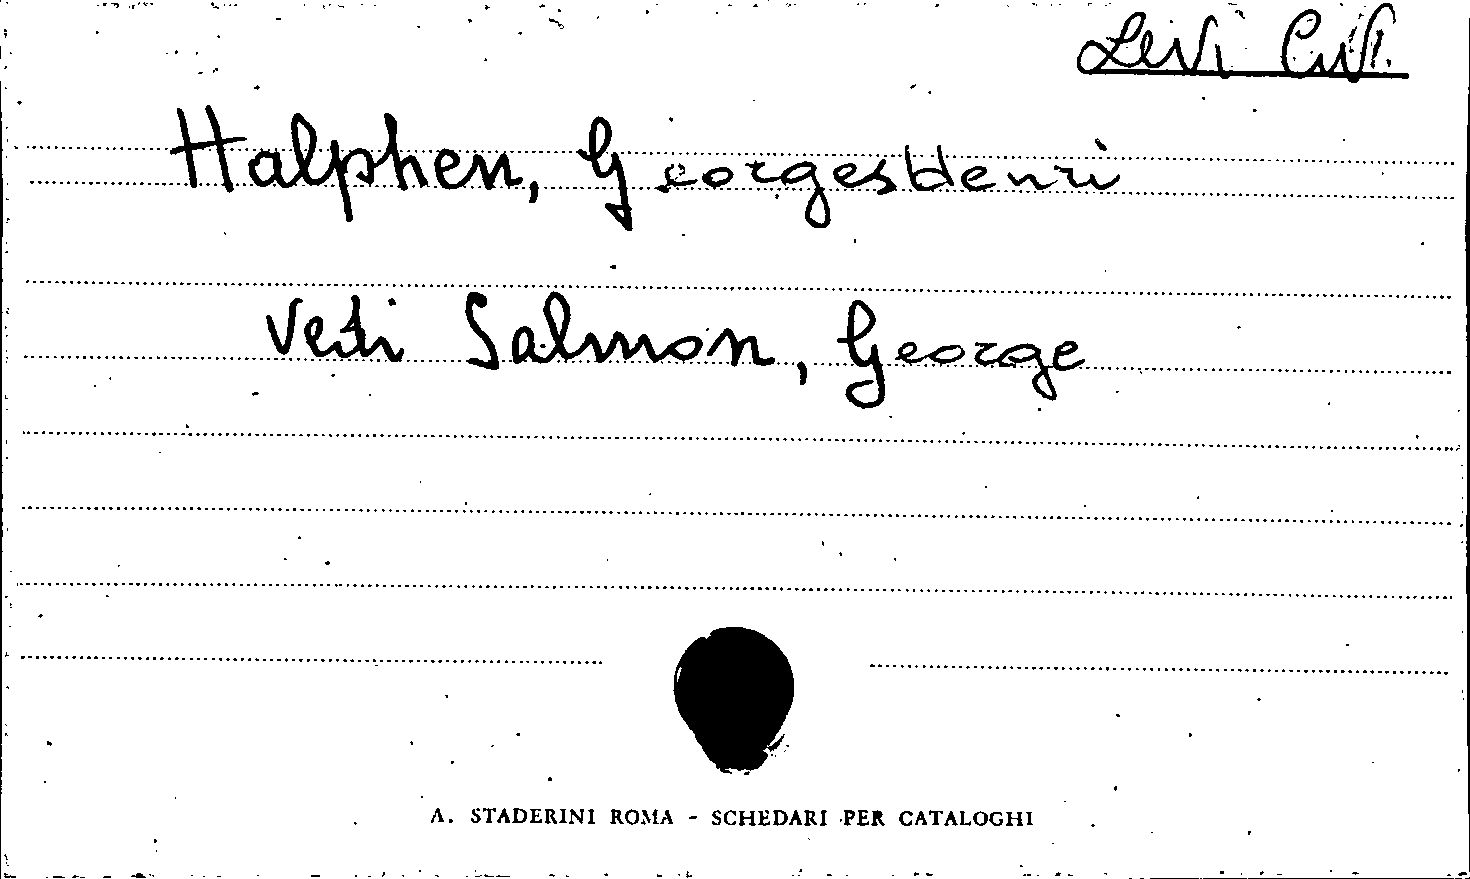 Levi Civi.
Halphen, Georges Henri
Vedi Salmon, George
A. STADERINI ROMA - SCHEDARI PER CATALOGHI